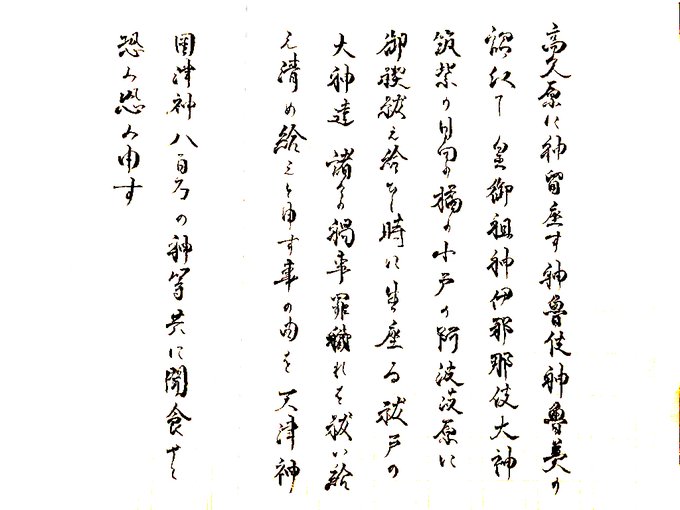 高天原に神留座す神魯伎神魯美の
詔以て皇御祖神伊邪那岐大神
筑紫の日向の橘の小戸の阿波岐原に
御禊祓え給ひし時に生座る祓戸の
大神達諸々の禍事罪穢れを祓い給
え清め給えと申す事の由を天津神
国津神八百万の神等共に聞食せと
恐み恐み申す